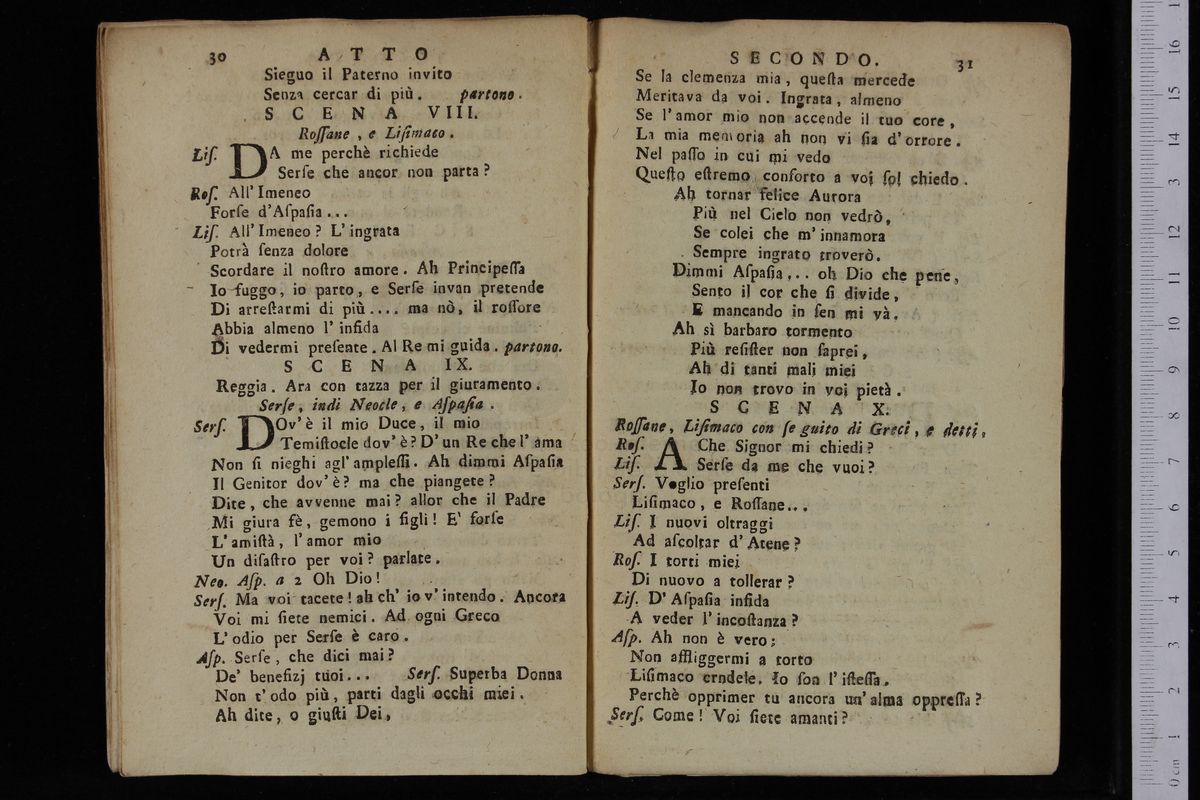 30 ATTO
Sieguo il Paterno invito
Senza cercar di più. partono.
SCENA VIII.
Roſſane, e Liſimaco.
Liſ. DA me perchè richiede
Serſe che ancor non parta?
Roſ. All'Imeneo
Forſe d'Aſpaſia...
Liſ. All'Imeneo? L'ingrata
Potrà ſenza dolore
Scordare il noſtro amore. Ah Principeſſa
Io fuggo, io parto, e Serſe invan pretende
Di arreſtarmi di più.... ma nò, il roſſore
Abbia almeno l'infida
Di vedermi preſente. Al Re mi guida. partono.
SCENA IX.
Reggia. Ara con tazza per il giuramento.
Serſe, indi Neocle, e Aſpaſia.
Serſ. DOv'è il mio Duce, il mio
Temiſtocle dov'è? D'un Re che l'ama
Non ſi nieghi agl'ampleſſi. Ah dimmi Aſpaſia
Il Genitor dov'è? ma che piangete?
Dite, che avvenne mai? allor che il Padre
Mi giura fè, gemono i figli! E' forſe
L'amiſtà, l'amor mio
Un diſaſtro per voi? parlate.
Neo. Aſp. a 2 Oh Dio!
Serſ. Ma voi tacete! ah ch'io v'intendo. Ancora
Voi mi ſiete nemici. Ad ogni Greco
L'odio per Serſe è caro.
Aſp. Serſe, che dici mai?
De' benefizj tuoi... Serſ. Superba Donna
Non t'odo più, parti dagli occhi miei.
Ah dite, o giuſti Dei,
SECONDO. 31
Se la clemenza mia, queſta mercede
Meritava da voi. Ingrata, almeno
Se l'amor mio non accende il tuo core,
La mia memoria ah non vi ſia d'orrore.
Nel paſſo in cui mi vedo
Queſto eſtremo conforto a voi ſol chiedo.
Ah tornar felice Aurora
Più nel Cielo non vedrò,
Se colei che m'innamora
Sempre ingrato troverò.
Dimmi Aſpaſia... oh Dio che pene,
Sento il cor che ſi divide,
E mancando in ſen mi và.
Ah sì barbaro tormento
Più reſiſter non ſaprei,
Ah di tanti mali miei
Io non trovo in voi pietà.
SCENA X.
Roſſane, Liſimaco con ſeguito di Greci, e detti,
Roſ. A Che Signor mi chiedi?
Liſ. Serſe da me che vuoi?
Serſ. Voglio preſenti
Liſimaco, e Roſſane...
Liſ. I nuovi oltraggi
Ad aſcoltar d'Atene?
Roſ. I torti miei
Di nuovo a tollerar?
Liſ. D'Aſpaſia infida
A veder l'incoſtanza?
Aſp. Ah non è vero;
Non affliggermi a torto
Liſimaco crndele. Io ſon l'iſteſſa.
Perchè opprimer tu ancora un'alma oppreſſa?
Serſ. Come! Voi ſiete amanti?
16
15
14
13
12
11
10
9
8
7
6
5
4
3
2
1
0 cm